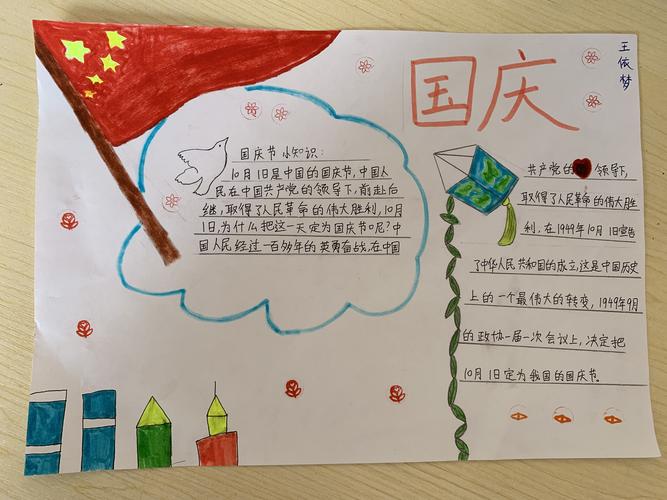 国庆
王依梦
国庆节小知识：
10月1日是中国的国庆节，中国人
民在中国共产党的领导下，前赴后
继，取得了人民革命的伟大胜利，10月
1日，为什么把这一天定为国庆节呢？中
国人民经过一百多年的英勇奋战，在中国
共产党的领导下，
取得了人民革命的伟大胜
利，在1949年10月1日宣告
了中华人民共和国的成立，这是中国历史
上的一个最伟大的转变，1949年9月
的政协一届一次会议上，决定把
10月1日定为我国的国庆节。